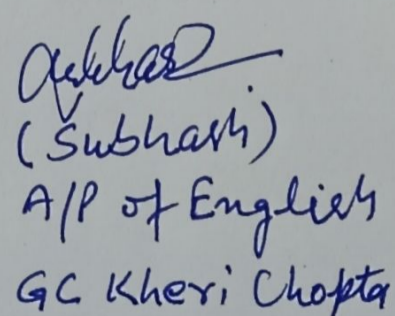 (Subhash)
A/P of English
GC Kheri Chopta